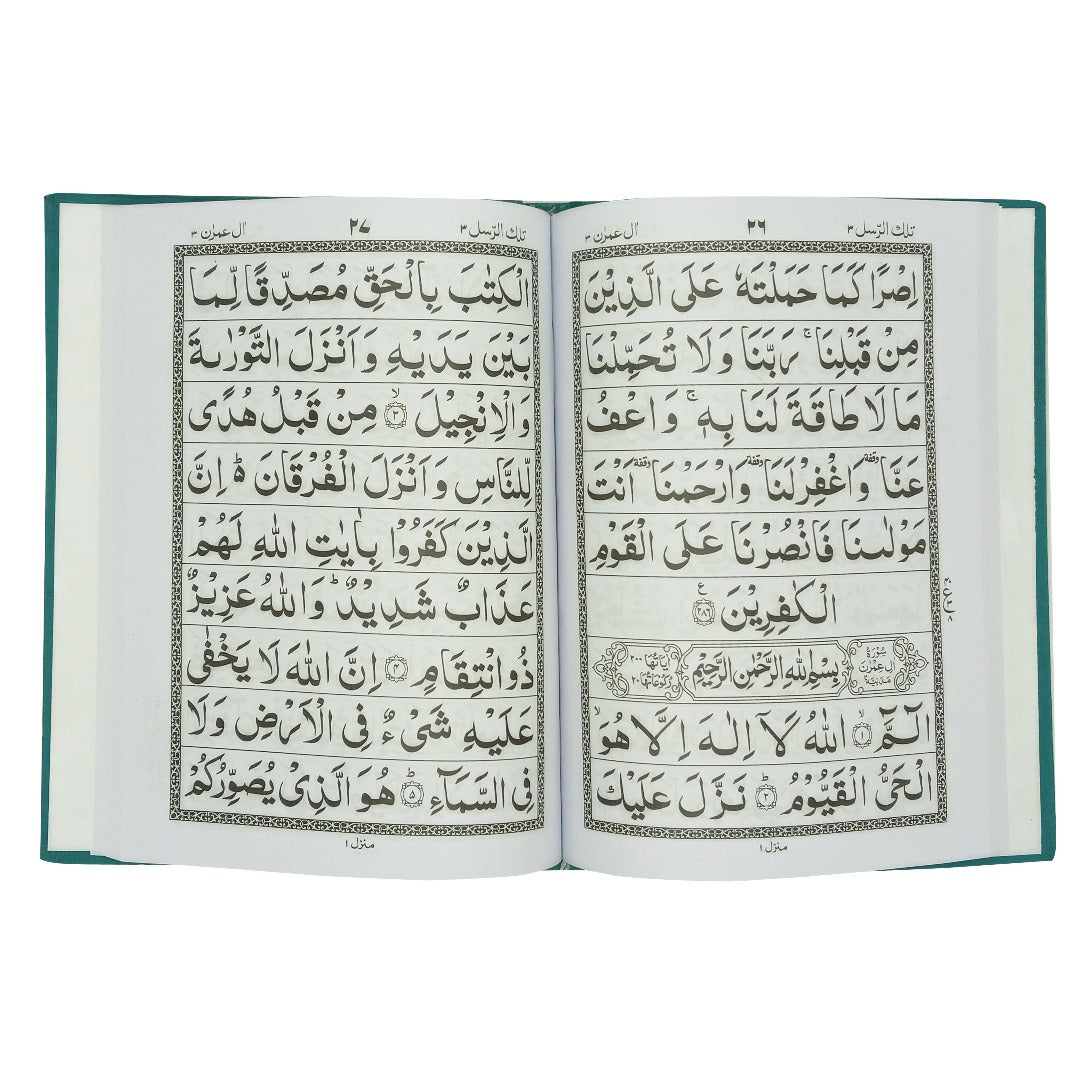 تلك الرسل ٣
٢٦
اٰل عمرٰن ٣
اِصْرًا كَمَا حَمَلْتَهٗ عَلَى الَّذِيْنَ
مِنْ قَبْلِنَا ۚ رَبَّنَا وَلَا تُحَمِّلْنَا
مَا لَا طَاقَةَ لَنَا بِهٖ ۚ وَاعْفُ
عَنَّا وقفة وَاغْفِرْلَنَا وقفة وَارْحَمْنَا وقفة اَنْتَ
مَوْلٰىنَا فَانْصُرْنَا عَلَى الْقَوْمِ
الْكٰفِرِيْنَ ع ٢٨٦
سُوْرَةُ اٰلِ عِمْرٰنَ مَدَنِيَّةٌ
بِسْمِ اللّٰهِ الرَّحْمٰنِ الرَّحِيْمِ
اٰيَاتُهَا ٢٠٠
رُكُوْعَاتُهَا ٢٠
الٓـمّٓ ۙ ١ اللّٰهُ لَاۤ اِلٰهَ اِلَّا هُوَ ۙ
الْحَىُّ الْقَيُّوْمُ ؕ ٢ نَزَّلَ عَلَيْكَ
منزل ١
تلك الرسل ٣
٢٧
اٰل عمرٰن ٣
الْكِتٰبَ بِالْحَقِّ مُصَدِّقًا لِّمَا
بَيْنَ يَدَيْهِ وَاَنْزَلَ التَّوْرٰىةَ
وَالْاِنْجِيْلَ ۙ ٣ مِنْ قَبْلُ هُدًى
لِّلنَّاسِ وَاَنْزَلَ الْفُرْقَانَ ؕ۬ اِنَّ
الَّذِيْنَ كَفَرُوْا بِاٰيٰتِ اللّٰهِ لَهُمْ
عَذَابٌ شَدِيْدٌ ؕ وَاللّٰهُ عَزِيْزٌ
ذُو انْتِقَامٍ ٤ اِنَّ اللّٰهَ لَا يَخْفٰى
عَلَيْهِ شَىْءٌ فِى الْاَرْضِ وَلَا
فِى السَّمَآءِ ؕ ٥ هُوَ الَّذِىْ يُصَوِّرُكُمْ
منزل ١